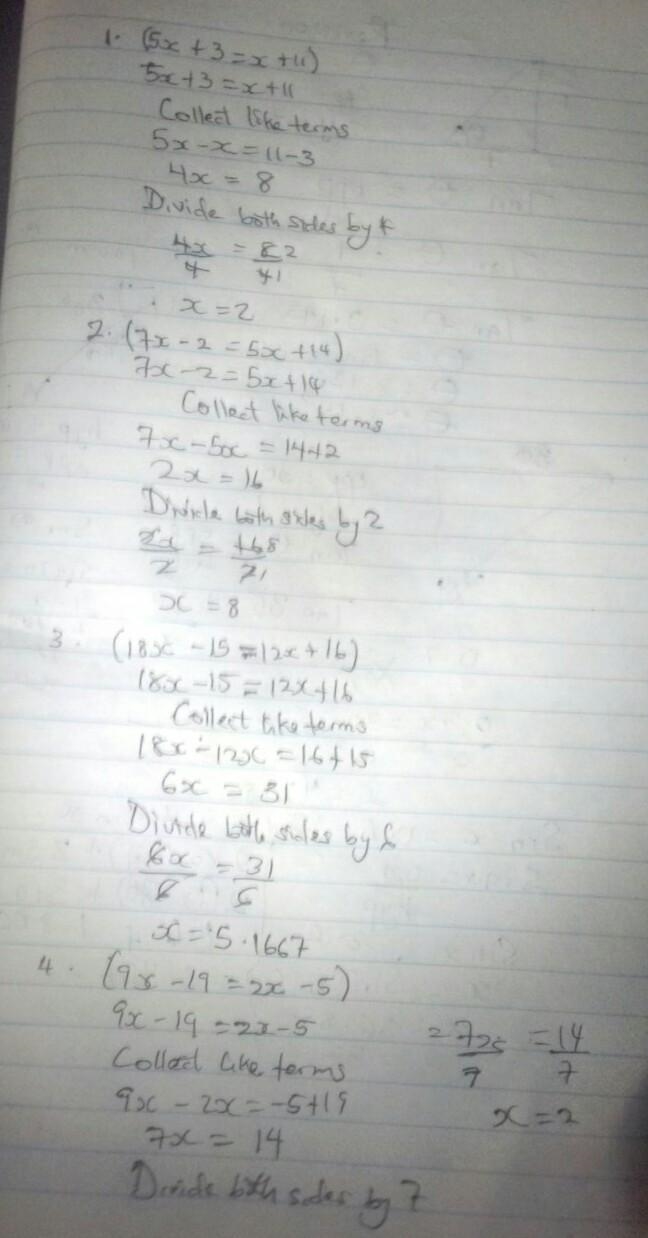 1. (5x + 3 = x + 11)
5x + 3 = x + 11
Collect like terms
5x - x = 11 - 3
4x = 8
Divide both sides by 4
4x/4 = 8 2/4 1
x = 2
2. (7x - 2 = 5x + 14)
7x - 2 = 5x + 14
Collect like terms
7x - 5x = 14 + 2
2x = 16
Divide both sides by 2
2x/2 = 16 8/2 1
x = 8
3. (18x - 15 = 12x + 16)
18x - 15 = 12x + 16
Collect like terms
18x - 12x = 16 + 15
6x = 31
Divide both sides by 6
6x/6 = 31/6
x = 5.1667
4. (9x - 19 = 2x - 5)
9x - 19 = 2x - 5
Collect like terms
9x - 2x = -5 + 19
7x = 14
Divide both sides by 7
= 7x/7 = 14/7
x = 2